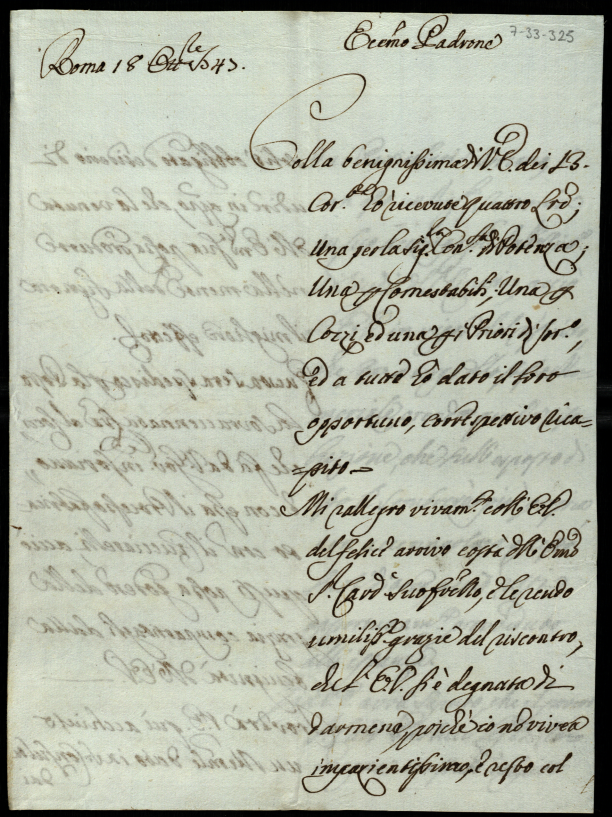 7-33-325
Eccmo Padrone
Roma 18 Ottbre 1743.
Colla benignissima di V.E. dei 13.
Cor.te hò ricevute quattro Lre;
Una per la Sig.ra Con.sa di Potenza;
Una p Connestabili, Una p
Cozzi, ed una p i Priori di Sor.o,
ed a tutte hò dato il loro
opportuno, correspettivo rica-
=pito=
Mi rallegro vivam.te coll'E.V.
del felice arrivo costà dell'Emo
S.r Card.l suo fratello, e le rendo
umiliss.e grazie del riscontro,
che l'E.V. si è degnata di
darmene, poiche io ne viveva
impazientissimo, e resto col